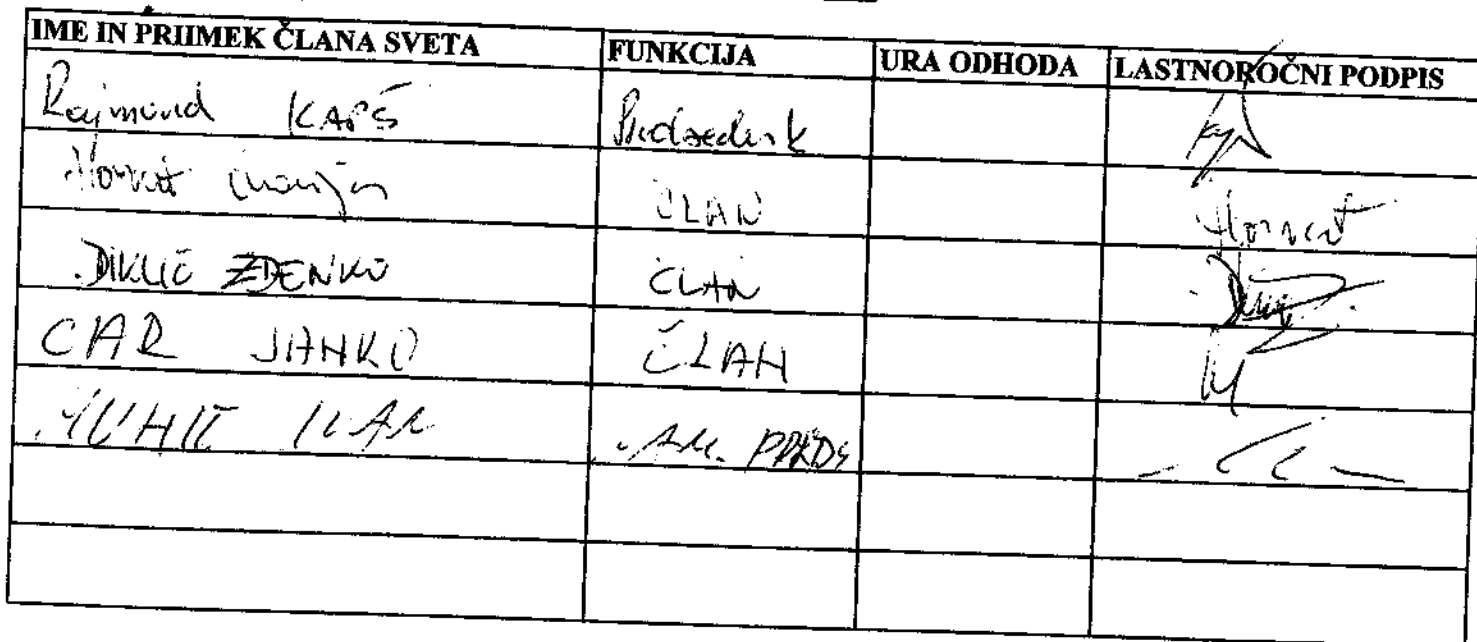 IME IN PRIIMEK ČLANA SVETA FUNKCIJA URA ODHODA LASTNOROČNI PODPIS
Rajmund KAPŠ Predsednik
Horvat Marija ČLAN Horvat
DIKLIČ ZDENKO ČLAN
CAR JANKO ČLAN
PREDS